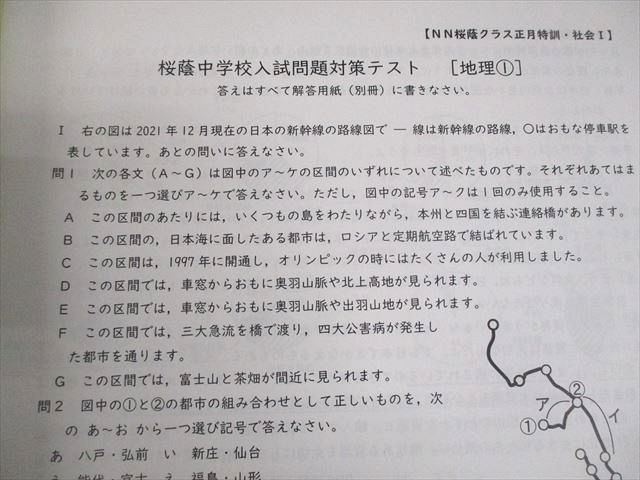 【NN桜蔭クラス正月特訓・社会Ⅰ】
桜蔭中学校入試問題対策テスト　［地理①］
答えはすべて解答用紙（別冊）に書きなさい。
Ⅰ　右の図は2021年12月現在の日本の新幹線の路線図で ― 線は新幹線の路線，○はおもな停車駅を
表しています。あとの問いに答えなさい。
問1　次の各文（A～G）は図中のア～ケの区間のいずれかについて述べたものです。それぞれあてはま
るものを一つ選びア～ケで答えなさい。ただし，図中の記号ア～クは1回のみ使用すること。
A　この区間のあたりには，いくつもの島をわたりながら，本州と四国を結ぶ連絡橋があります。
B　この区間の，日本海に面したある都市は，ロシアと定期航空路で結ばれています。
C　この区間は，1997年に開通し，オリンピックの時にはたくさんの人が利用しました。
D　この区間では，車窓からおもに奥羽山脈や北上高地が見られます。
E　この区間では，車窓からおもに奥羽山脈や出羽山地が見られます。
F　この区間では，三大急流を橋で渡り，四大公害病が発生し
た都市を通ります。
G　この区間では，富士山と茶畑が間近に見られます。
問2　図中の①と②の都市の組み合わせとして正しいものを，次
の あ～お から一つ選び記号で答えなさい。
あ　八戸・弘前　い　新庄・仙台
え　福島・山形
②
ア
①
イ